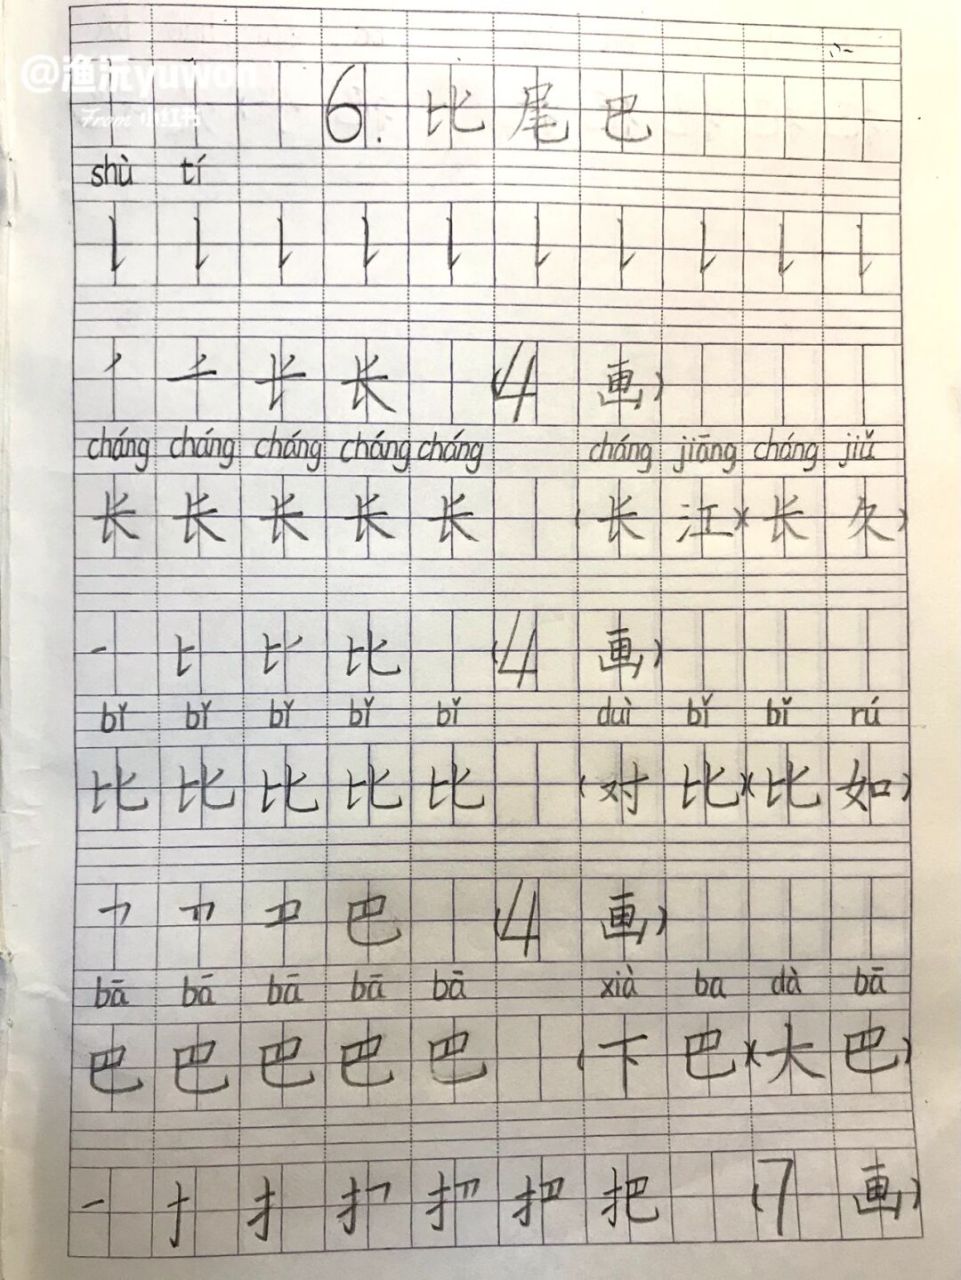 @渔沅yuwon
6.比尾巴
shù tí
㇙ ㇙ ㇙ ㇙ ㇙ ㇙ ㇙ ㇙ ㇙ ㇙
长 (4画)
cháng cháng cháng cháng cháng cháng jiāng cháng jiǔ
长 长 长 长 长 (长江)(长久)
一 比 (4画)
bǐ bǐ bǐ bǐ bǐ duì bǐ bǐ rú
比 比 比 比 比 (对比)(比如)
巴 (4画)
bā bā bā bā bā xià ba dà bā
巴 巴 巴 巴 巴 (下巴)(大巴)
一 扌 扌 把 (7画)